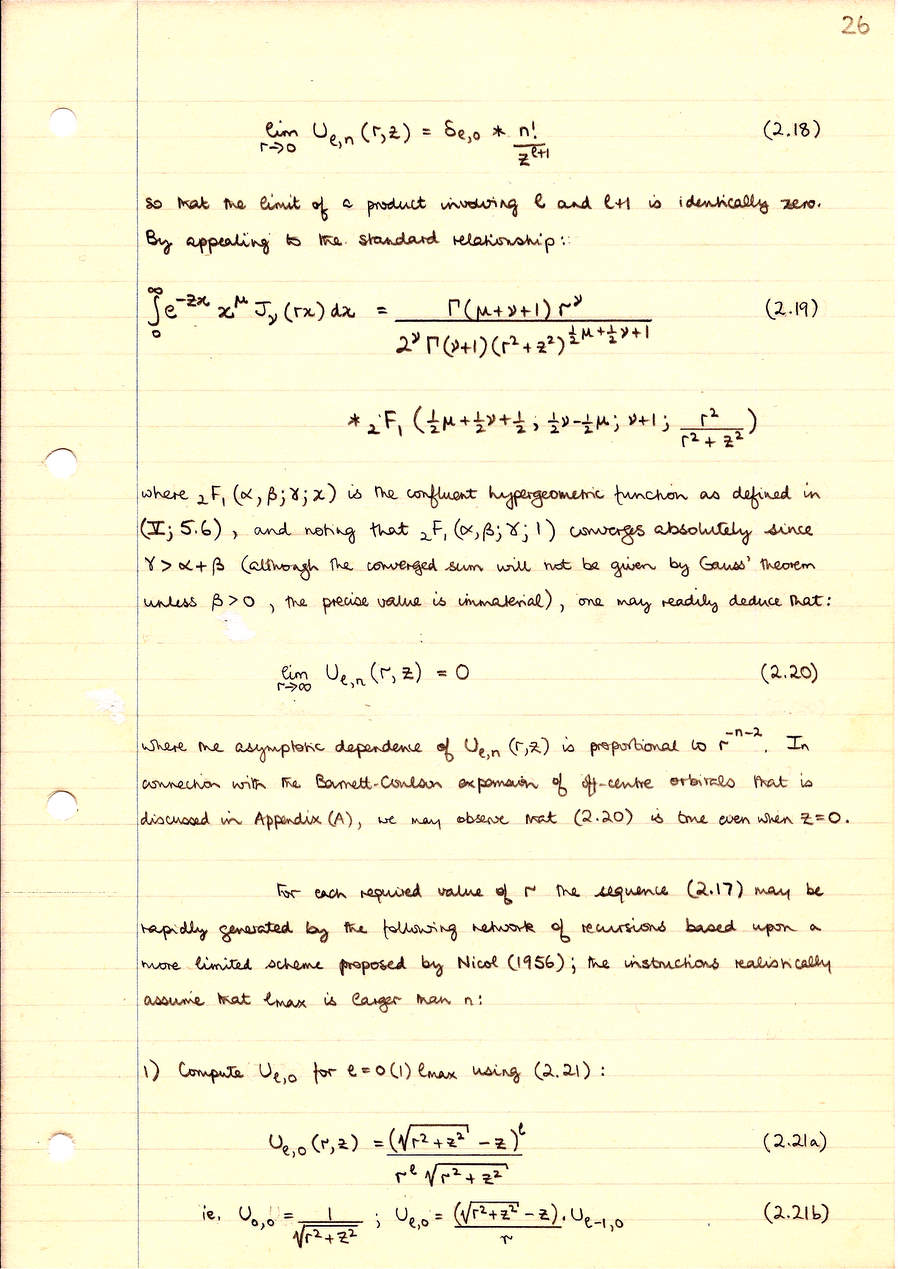 26
lim U_{ℓ,n} (r,z) = δ_{ℓ,0} * n!/z^{ℓ+1} (2.18)
r→0
so that the limit of a product involving ℓ and ℓ+1 is identically zero.
By appealing to the standard relationship:
∫_0^∞ e^{-zx} x^μ J_ν (rx) dx = Γ(μ+ν+1) r^ν / 2^ν Γ(ν+1) (r²+z²)^{½μ+½ν+1} (2.19)
* ₂F₁ (½μ+½ν+½ ; ½ν-½μ ; ν+1 ; r²/(r²+z²))
where ₂F₁ (α,β;γ;x) is the confluent hypergeometric function as defined in
(V; 5.6), and noting that ₂F₁ (α,β;γ;1) converges absolutely since
γ > α+β (although the converged sum will not be given by Gauss' theorem
unless β>0, the precise value is immaterial), one may readily deduce that:
lim U_{ℓ,n} (r,z) = 0 (2.20)
r→∞
where the asymptotic dependence of U_{ℓ,n} (r,z) is proportional to r^{-n-2}. In
connection with the Barnett-Coulson expansion of off-centre orbitals that is
discussed in Appendix (A), we may observe that (2.20) is true even when z=0.
For each required value of r the sequence (2.17) may be
rapidly generated by the following network of recursions based upon a
more limited scheme proposed by Nicol (1956); the instructions realistically
assume that ℓmax is larger than n:
1) Compute U_{ℓ,0} for ℓ=0(1)ℓmax using (2.21):
U_{ℓ,0} (r,z) = (√(r²+z²) - z)^ℓ / r^ℓ √(r²+z²) (2.21a)
ie. U_{0,0} = 1/√(r²+z²) ; U_{ℓ,0} = (√(r²+z²) - z)/r . U_{ℓ-1,0} (2.21b)